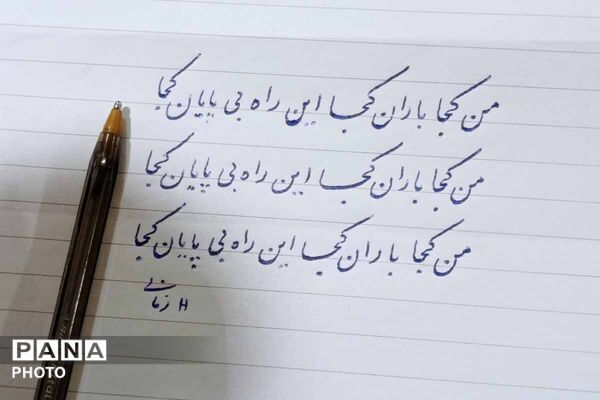 من کجا باران کجا این راه بی پایان کجا
من کجا باران کجا این راه بی پایان کجا
من کجا باران کجا این راه بی پایان کجا
H زمانی
PANA
PHOTO